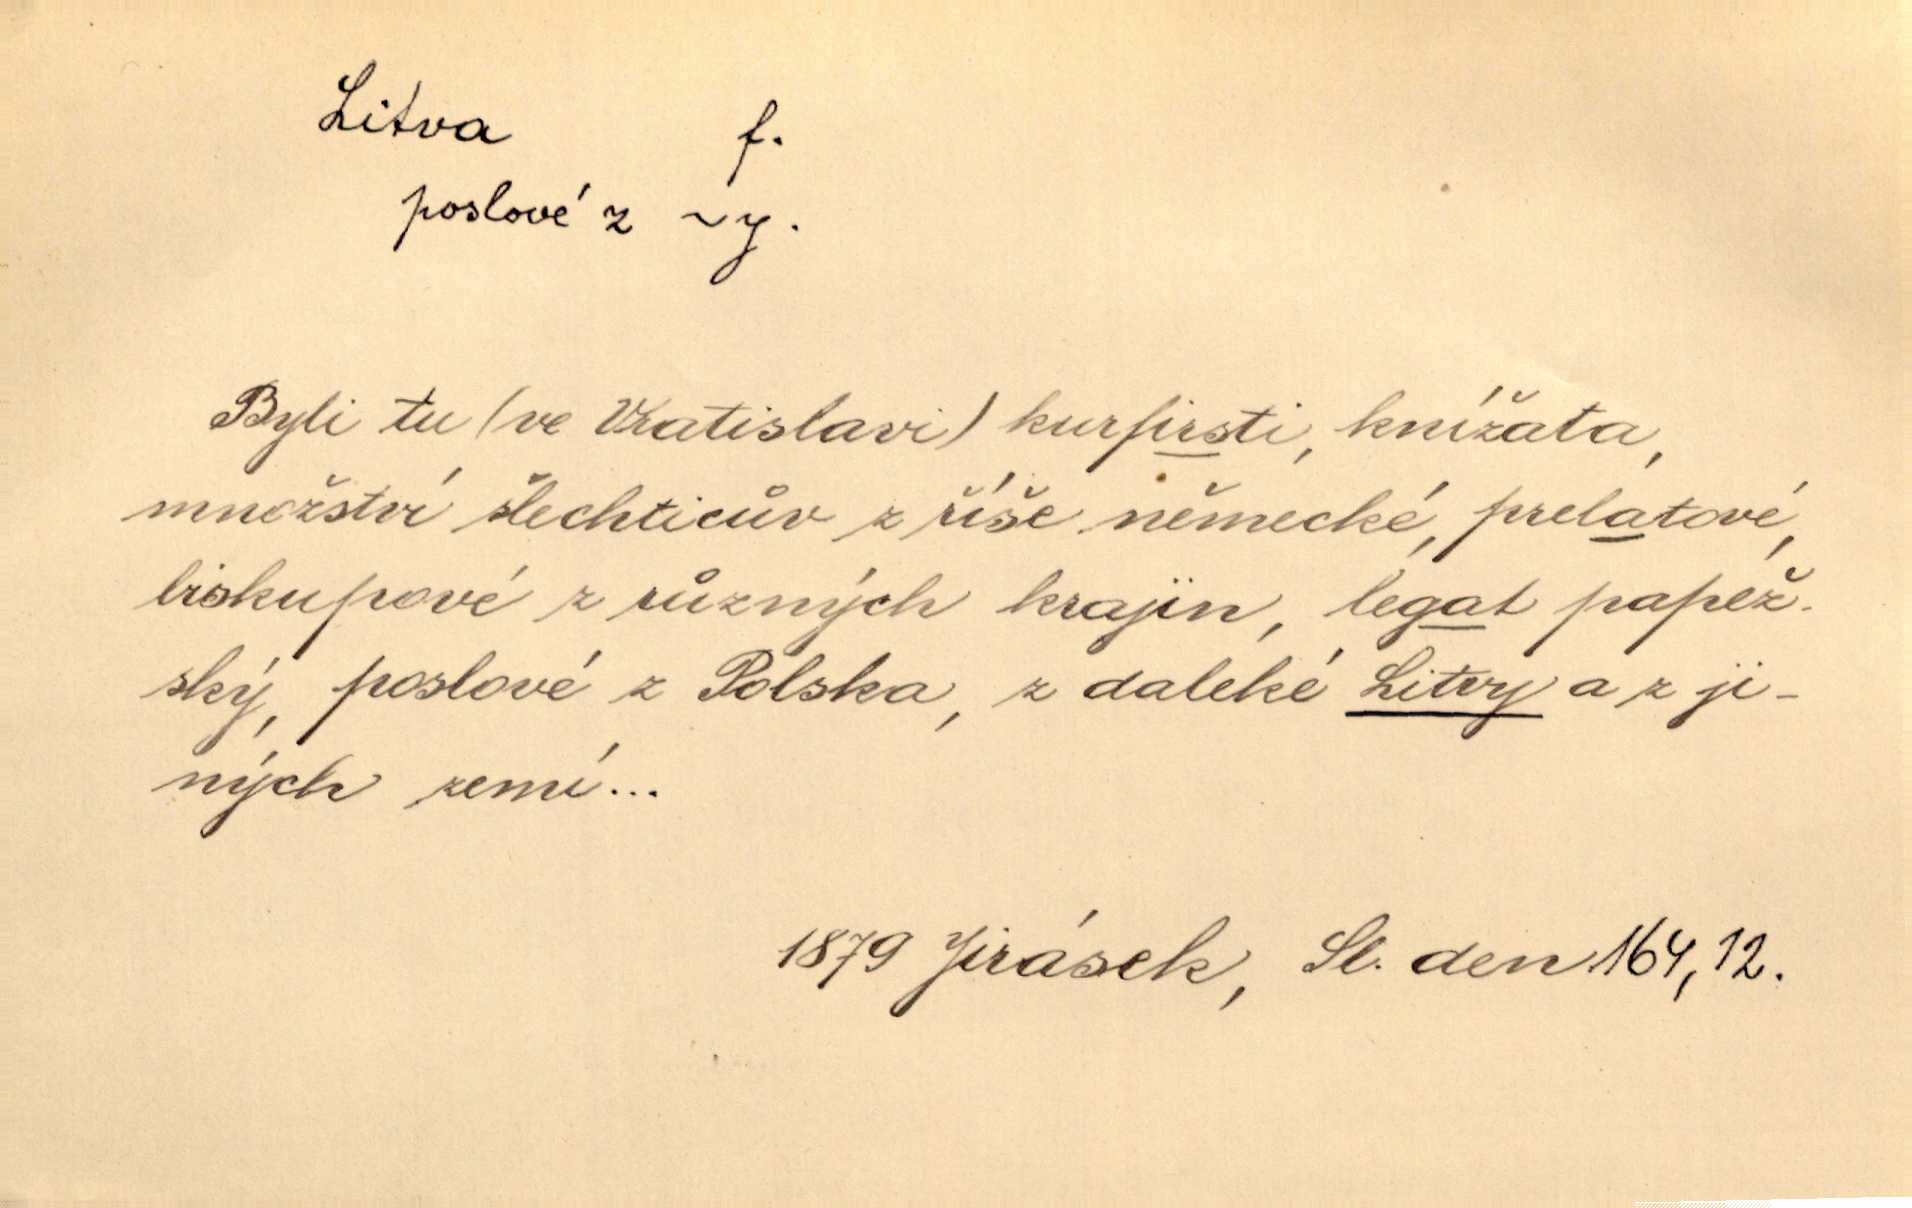 Litva f.
poslové z ~y.
Byli tu (ve Vratislavi) kurfirsti, knížata,
množství šlechticův z říše německé, prelatové,
biskupové z různých krajin, legat papež-
ský, poslové z Polska, z daleké Litvy a z ji-
ných zemí...
1879 Jirásek, Sl. den 164, 12.